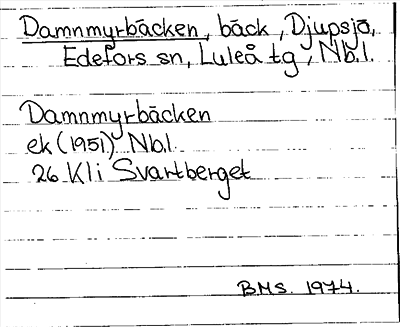 Damnmyrbäcken, bäck, Djupsjö,
Edefors sn, Luleå tg, Nb.l.
Damnmyrbäcken
ek (1951) Nb.l.
26 Kli Svartberget
B.M.S. 1974.